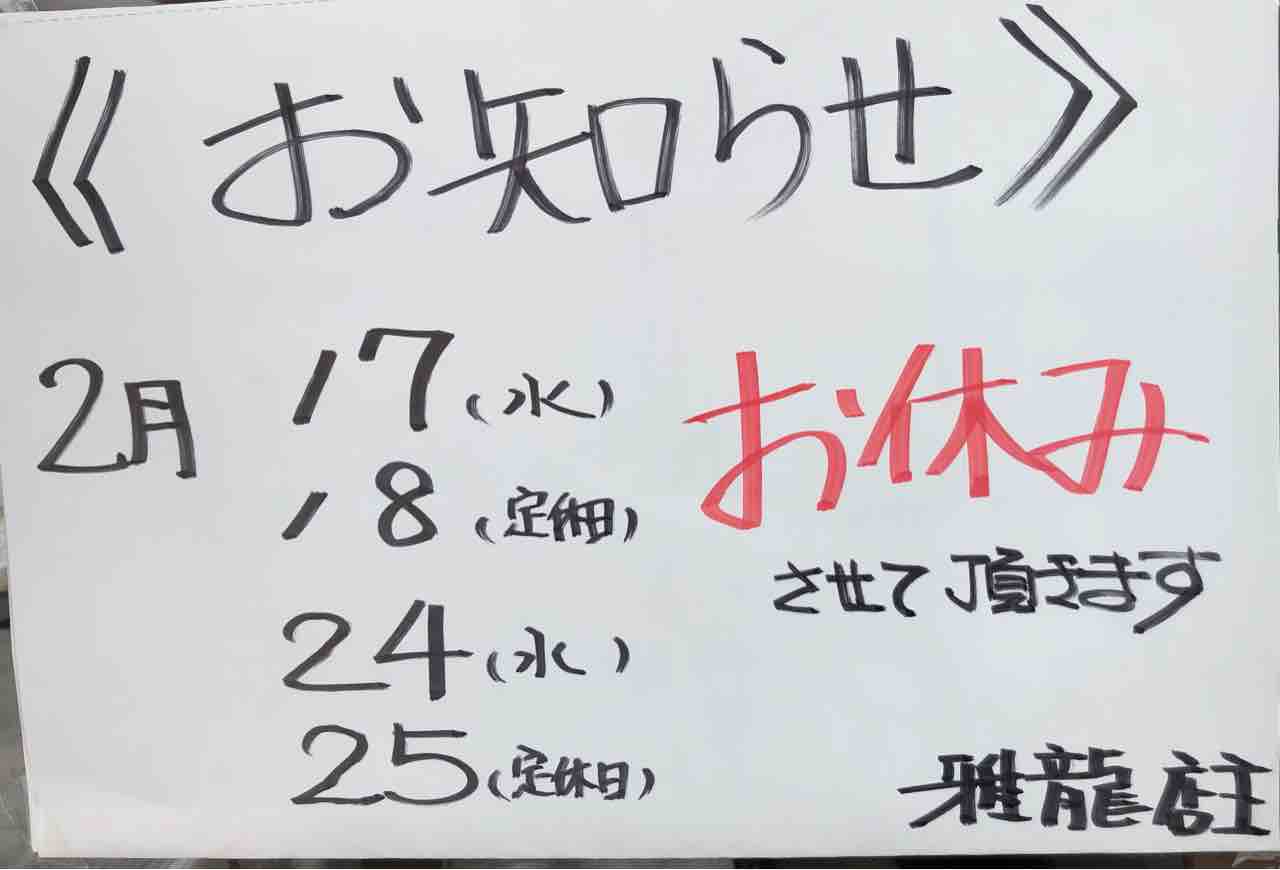 《お知らせ》
2月 17(水)
18(定休日)
24(水)
25(定休日)
お休み
させて頂きます
雅龍 店主